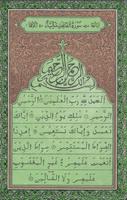 سورة الفاتحة
بسم الله الرحمن الرحيم
الحمد لله رب العلمين الرحمن
الرحيم ملك يوم الدين اياك
نعبد واياك نستعين اهدنا
الصراط المستقيم صراط الذين
انعمت عليهم غير المغضوب
عليهم ولا الضالين